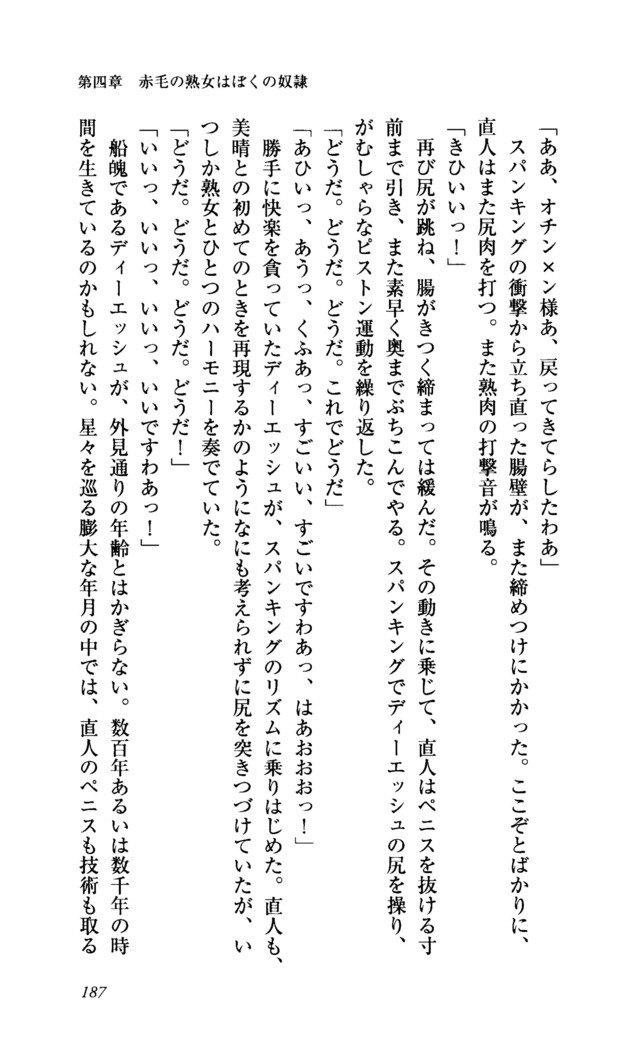 第四章　赤毛の熟女はぼくの奴隷
「ああ、オチン×ン様あ、戻ってきてらしたわあ」
　スパンキングの衝撃から立ち直った腸壁が、また締めつけにかかった。ここぞとばかりに、
直人はまた尻肉を打つ。また熟肉の打撃音が鳴る。
「きひいいっ！」
　再び尻が跳ね、腸がきつく締まっては緩んだ。その動きに乗じて、直人はペニスを抜ける寸
前まで引き、また素早く奥までぶちこんでやる。スパンキングでディーエッシュの尻を操り、
がむしゃらなピストン運動を繰り返した。
「どうだ。どうだ。どうだ。これでどうだ」
「あひいっ、あうっ、くふあっ、すごいい、すごいですわあっ、はあおおおっ！」
　勝手に快楽を貪っていたディーエッシュが、スパンキングのリズムに乗りはじめた。直人も、
美晴との初めてのときを再現するかのようになにも考えられずに尻を突きつづけていたが、い
つしか熟女とひとつのハーモニーを奏でていた。
「どうだ。どうだ。どうだ。どうだ！」
「いいっ、いいっ、いいっ、いいですわあっ！」
　船魄であるディーエッシュが、外見通りの年齢とはかぎらない。数百年あるいは数千年の時
間を生きているのかもしれない。星々を巡る膨大な年月の中では、直人のペニスも技術も取る
187